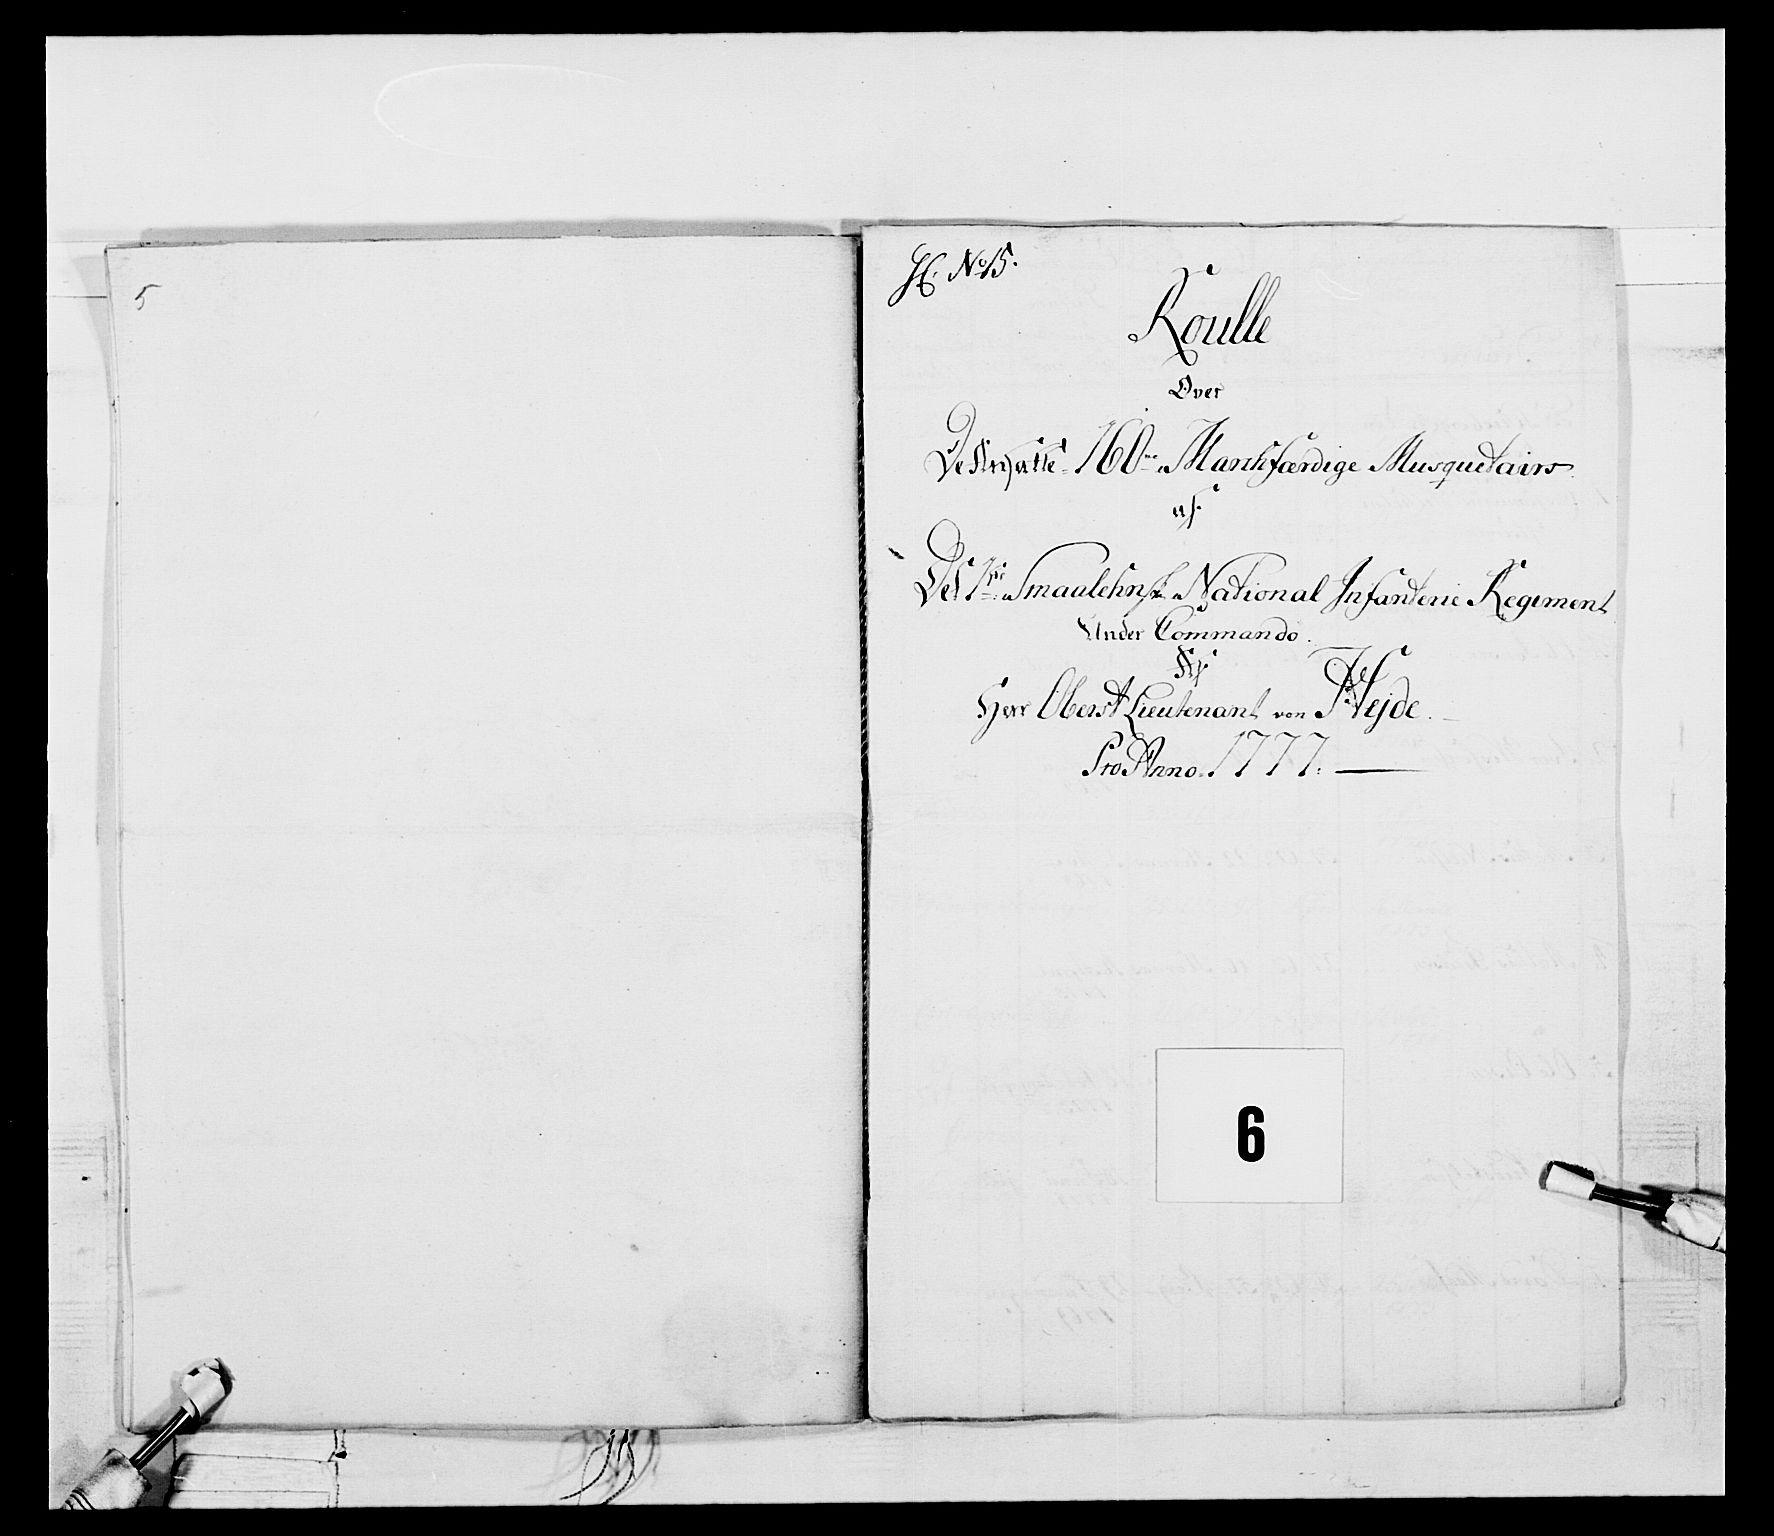 5
H. No 15.
Roulle
Over
De 160de Marshfærdige Musquetairs
af
Det 1ste Smaalehnske National Infanterie Regiment
Under Commando
Af
Herr Oberst Lieutenant von Hejde.
Pro Anno. 1777.
6